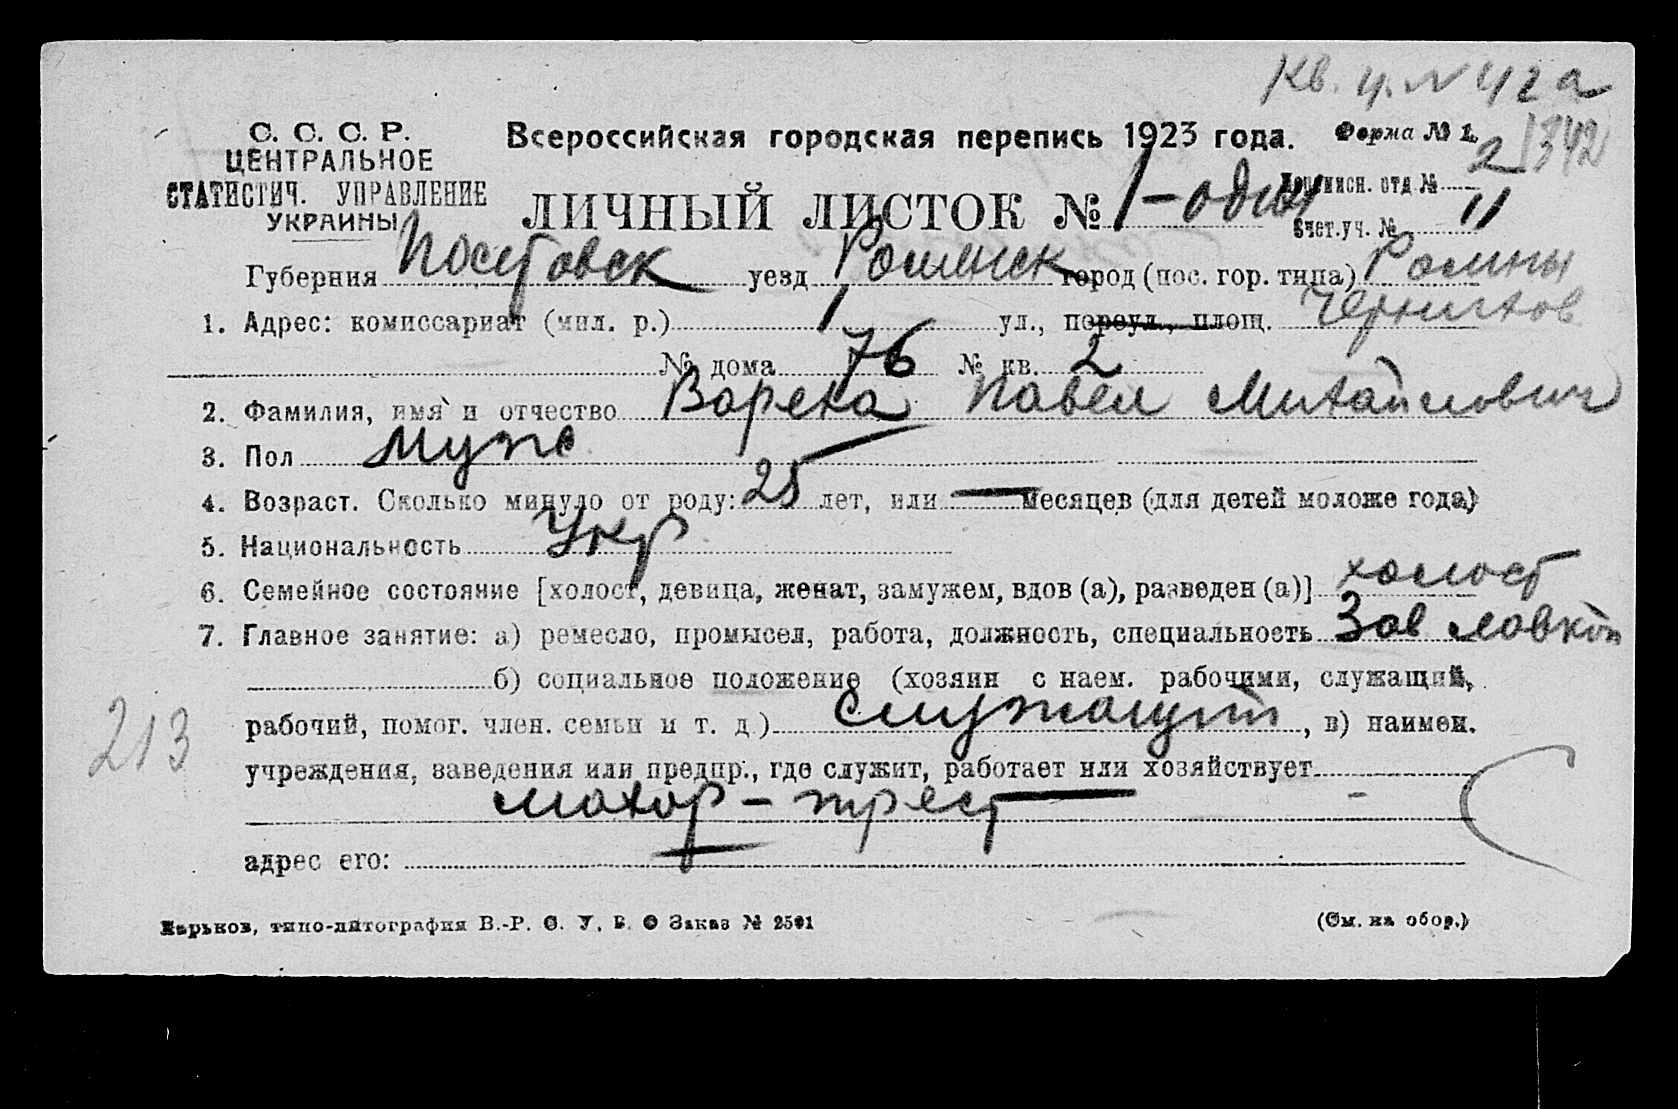 Кв. ц. № 42 а
С. С. С. Р.
ЦЕНТРАЛЬНОЕ
СТАТИСТИЧ. УПРАВЛЕНИЕ
УКРАИНЫ
Всероссийская городская перепись 1923 года.
Форма № 1.
2
ЛИЧНЫЙ ЛИСТОК № 1 - один
Переписн. отд. №
Счет. уч. № 11
Губерния Полтовск уезд Роменск город (пос. гор. типа) Ромны
1. Адрес: комиссариат (мил. р.) 1 ул., переул., площ. Чернигов
№ дома 76 № кв. 2
2. Фамилия, имя и отчество Вареха Павел Михайлович
3. Пол муж
4. Возраст. Сколько минуло от роду: 25 лет, или — месяцев (для детей моложе года)
5. Национальность Укр
6. Семейное состояние [холост, девица, женат, замужем, вдов (а), разведен (а)] холост
7. Главное занятие: а) ремесло, промысел, работа, должность, специальность Зав лавкой
б) социальное положение (хозяин с наем. рабочими, служащий,
рабочий, помог. член. семьи и т. д.) служащий, в) наимен.
учреждения, заведения или предпр., где служит, работает или хозяйствует
махор - трест
адрес его:
213
Харьков, типо-литография В.-Р. С. У. В. О Заказ № 2591
(См. на обор.)